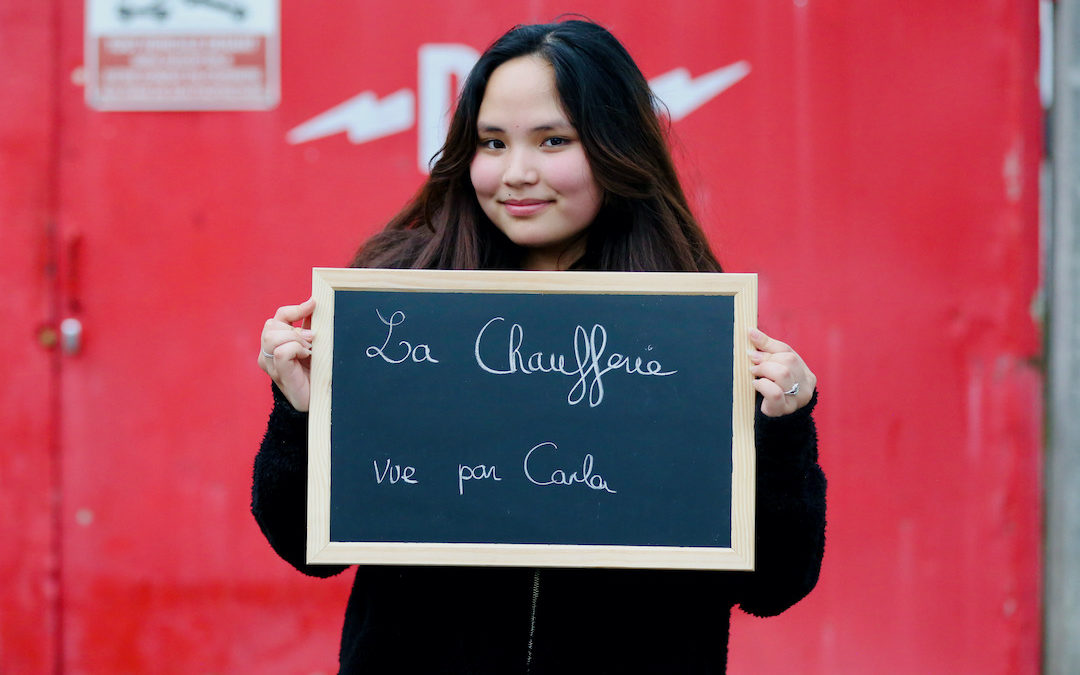 La Chaufferie
vue par Carla